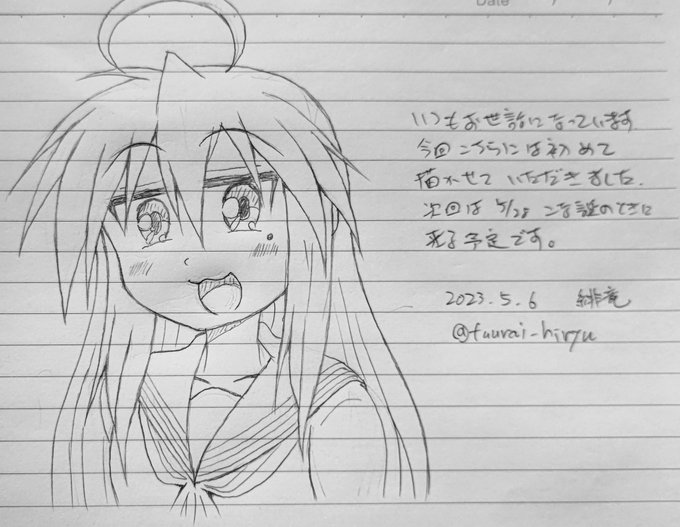 Date
いつもお世話になっています
今回こちらには初めて
描かせていただきました.
次回は 5/28 こな誕のときに
来る予定です。
2023.5.6 緋竜
@fuurai_hiryu